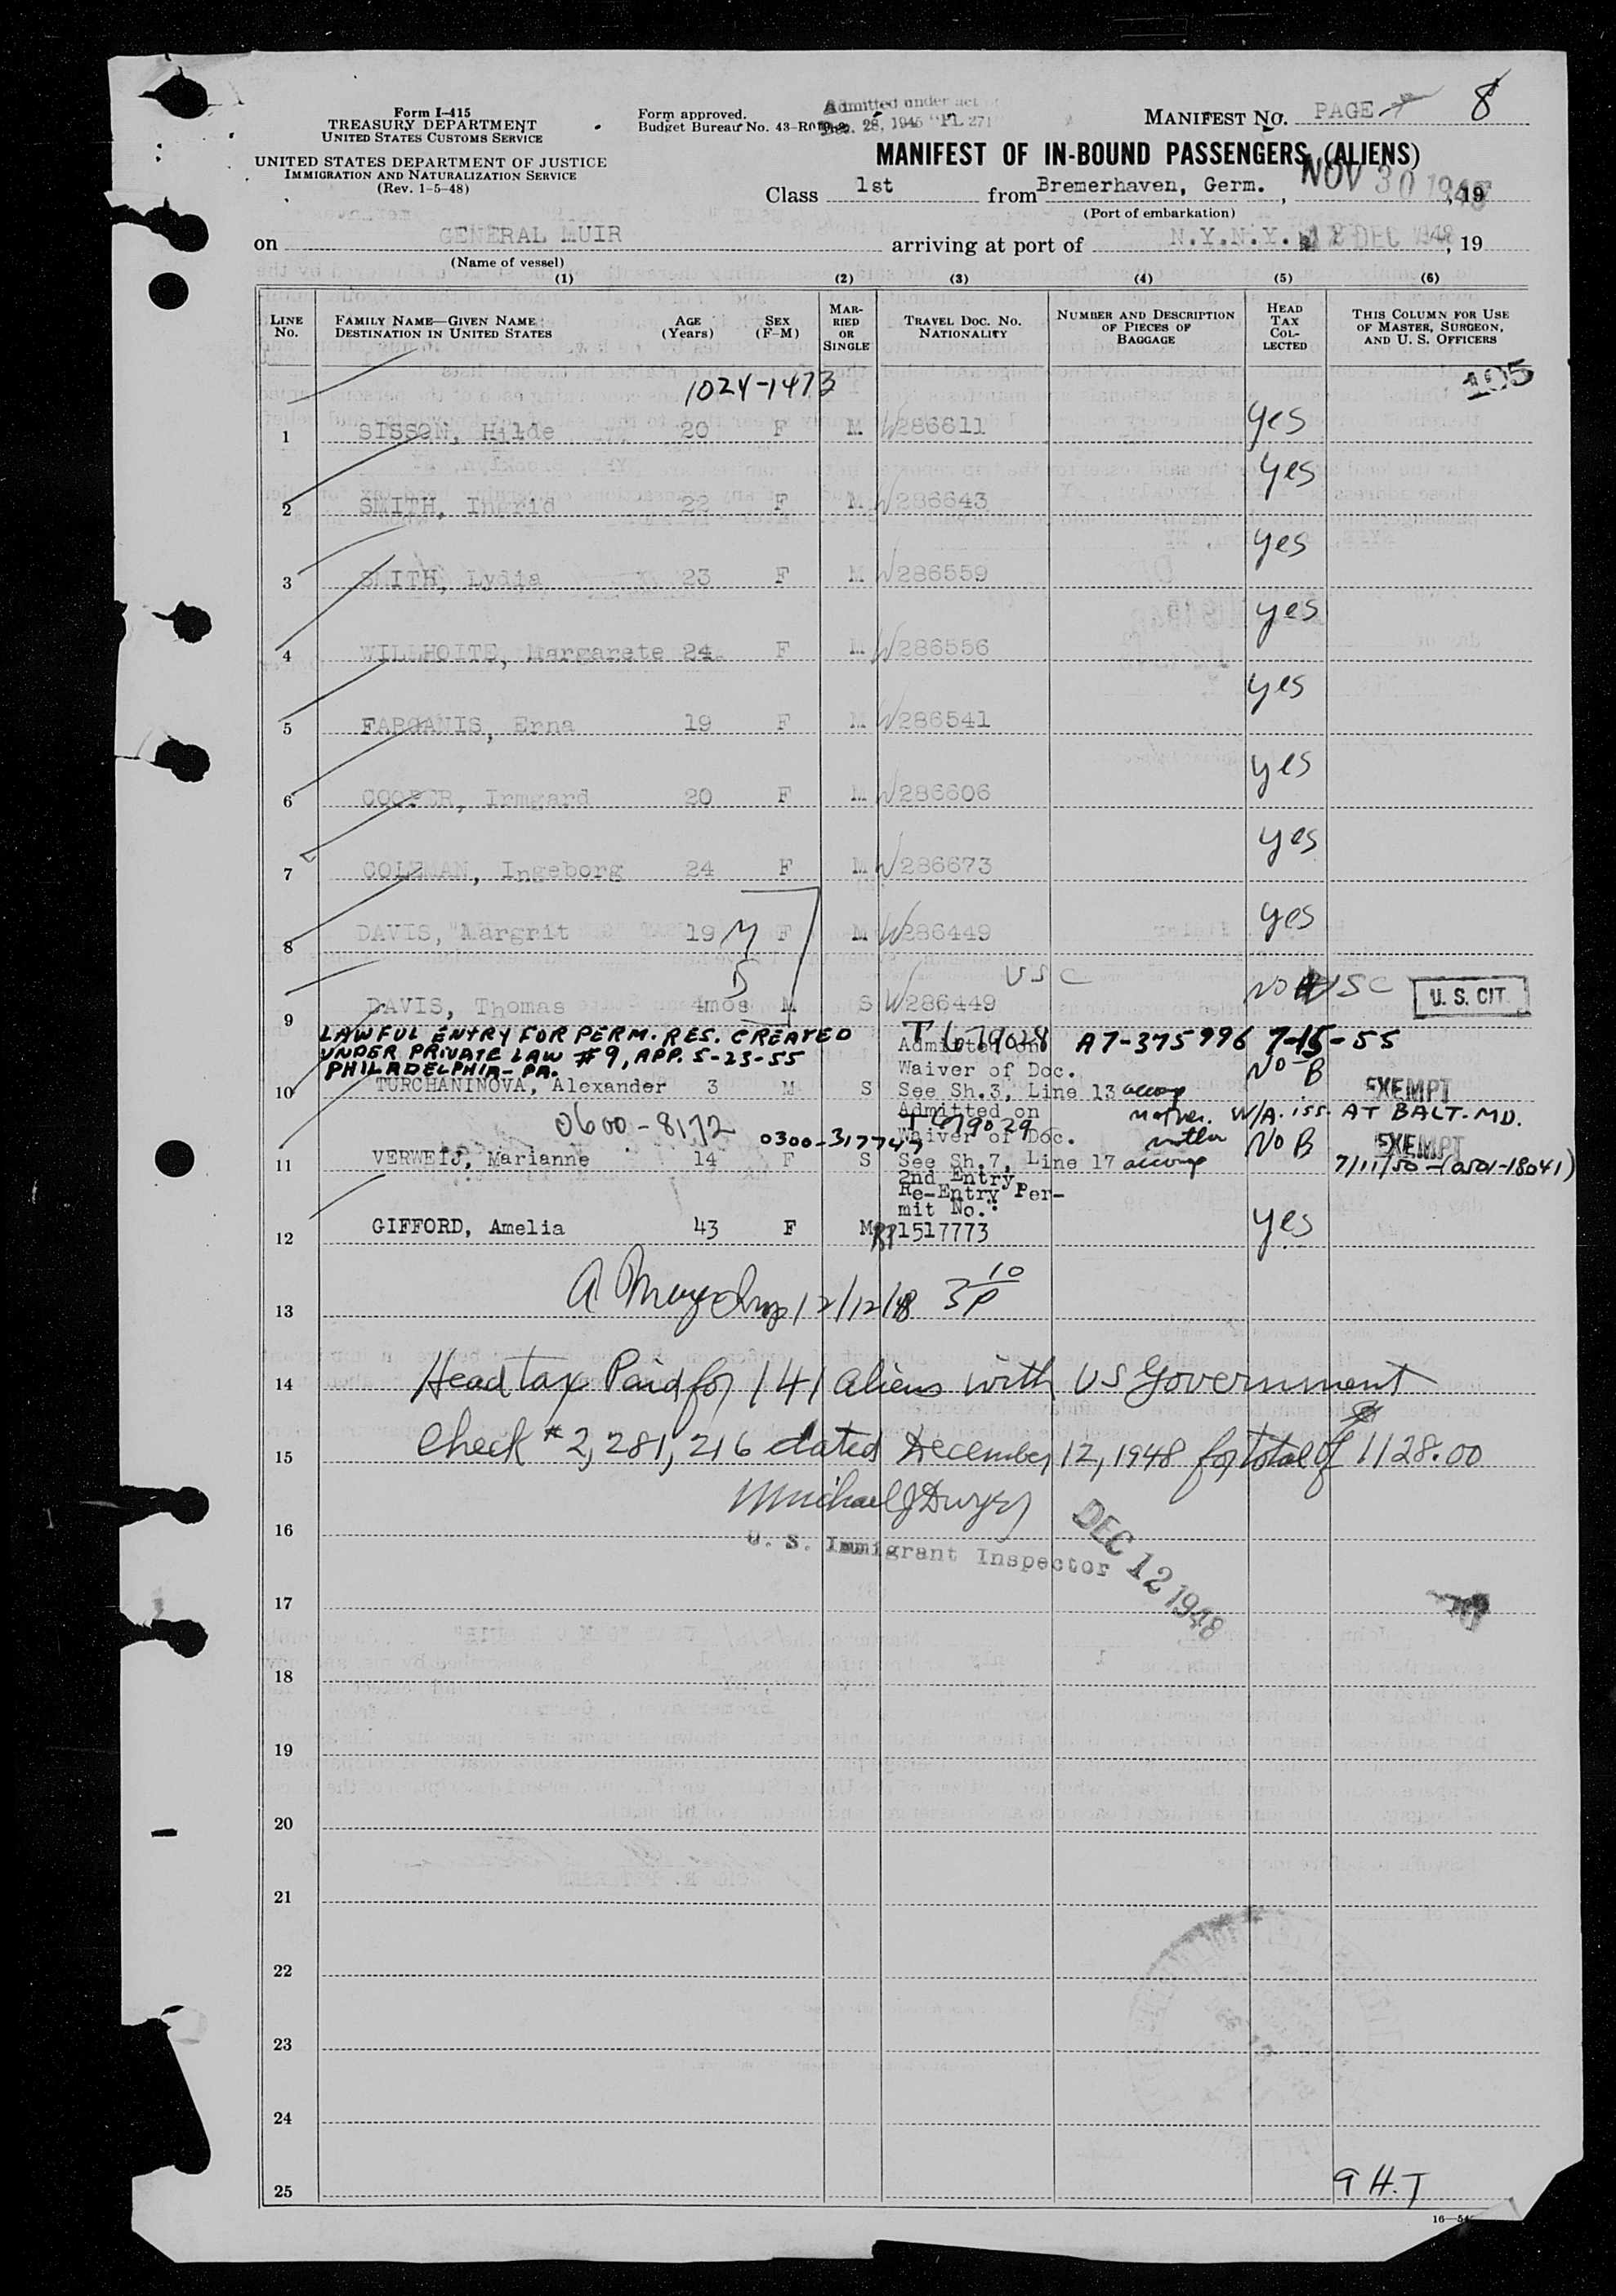 Form I-415
TREASURY DEPARTMENT
UNITED STATES CUSTOMS SERVICE
UNITED STATES DEPARTMENT OF JUSTICE
IMMIGRATION AND NATURALIZATION SERVICE
(Rev. 1-5-48)
Form approved.
Budget Bureau No. 43-R
Admitted under act of
Dec. 28, 1945 "PL 271"
MANIFEST NO. PAGE 8
MANIFEST OF IN-BOUND PASSENGERS (ALIENS)
Class 1st from Bremerhaven, Germ., NOV 30 1948, 19
(Port of embarkation)
on GENERAL MUIR arriving at port of N.Y.N.Y. 12 DEC 1948, 19
(Name of vessel)
(1) (2) (3) (4) (5) (6)
LINE No. FAMILY NAME—GIVEN NAME DESTINATION IN UNITED STATES AGE (Years) SEX (F-M) MARRIED OR SINGLE TRAVEL DOC. NO. NATIONALITY NUMBER AND DESCRIPTION OF PIECES OF BAGGAGE HEAD TAX COLLECTED THIS COLUMN FOR USE OF MASTER, SURGEON, AND U. S. OFFICERS
1024-1473 105
1 SISSON, Hilde 20 F M W286611 yes
2 SMITH, Ingrid 22 F M W286643 yes
3 SMITH, Lydia 23 F M W286559 yes
4 WILLHOITE, Margarete 24 F M W286556 yes
5 FARGANIS, Erna 19 F M W286541 yes
6 COOPER, Irmgard 20 F M W286606 yes
7 COLEMAN, Ingeborg 24 F M W286673 yes
8 DAVIS, Margrit 19 M F M W286449 yes
S USC
9 DAVIS, Thomas 4mos M S W286449 NO USC U. S. CIT.
LAWFUL ENTRY FOR PERM. RES. CREATED T 679028 A7-375996 7-15-55
UNDER PRIVATE LAW #9, APP. 5-23-55 Admitted on
PHILADELPHIA-PA. Waiver of Doc. NO B
10 TURCHANINOVA, Alexander 3 M S See Sh.3, Line 13 accomp EXEMPT
Admitted on mother. W/A. ISS. AT BALT. MD.
0600-8172 T 679029
0300-317747 Waiver of Doc. mother NO B EXEMPT
11 VERWEIJ, Marianne 14 F S See Sh.7, Line 17 accomp 7/11/50-(0501-18041)
2nd Entry
Re-Entry Per-
mit No.:
12 GIFFORD, Amelia 43 F M RP 1517773 yes
13 12/12/48 3 10 P
14 Head tax Paid for 141 aliens with US Government
15 Check # 2,281,216 dated December 12, 1948 for total of $1128.00
16 Michael J Dwyer
U. S. Immigrant Inspector DEC 12 1948
17
18
19
20
21
22
23
24
25 9 H.T